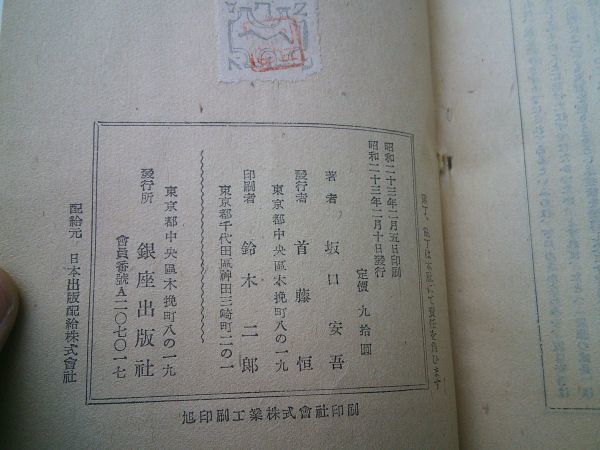 落丁、乱丁は本社にて責任を負ひます
昭和二十三年二月五日印刷
昭和二十三年二月十日發行
定價 九拾圓
著者 坂口安吾
發行者 首藤恒
東京都中央區木挽町八の一九
印刷者 鈴木二郎
東京都千代田區神田三崎町二の一
東京都中央區木挽町八の一九
發行所 銀座出版社
會員番號A二〇七〇一七
配給元 日本出版配給株式會社
旭印刷工業株式會社印刷